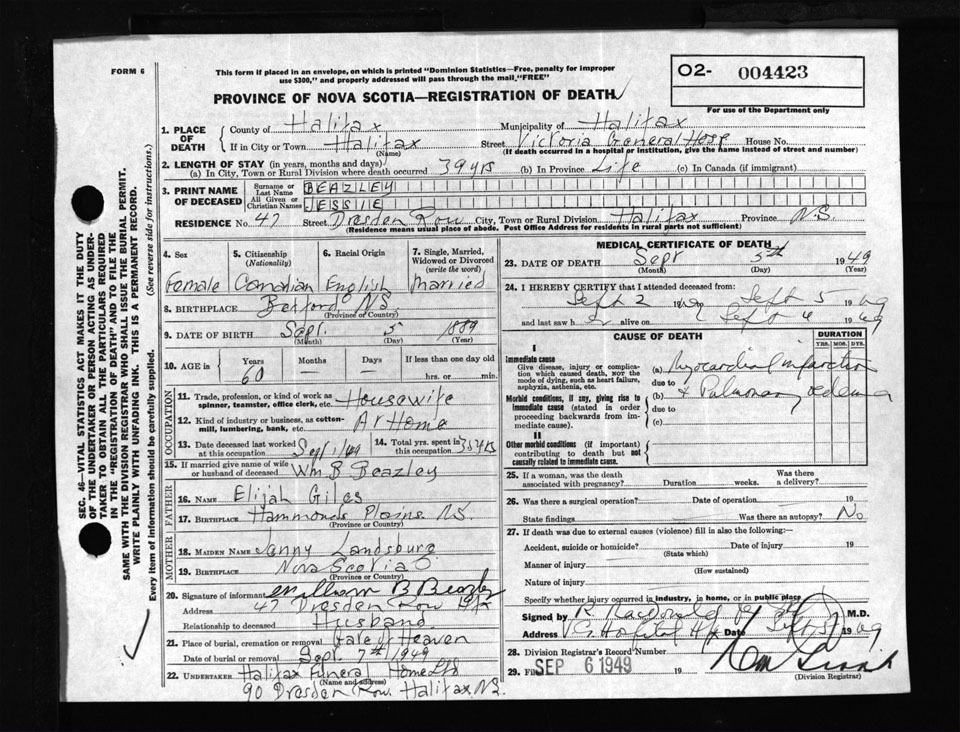 FORM 6
This form if placed in an envelope, on which is printed "Dominion Statistics—Free, penalty for improper
use $300," and properly addressed will pass through the mail "FREE"
02- 004423
For use of the Department only
PROVINCE OF NOVA SCOTIA—REGISTRATION OF DEATH
1. PLACE OF DEATH
County of Halifax Municipality of Halifax
If in City or Town Halifax Street Victoria General Hosp House No.
(Name) (If death occurred in a hospital or institution, give the name instead of street and number)
2. LENGTH OF STAY (in years, months and days)
(a) In City, Town or Rural Division where death occurred 39 yrs (b) In Province Life (c) In Canada (if immigrant)
3. PRINT NAME OF DECEASED
Surname or Last Name BEAZLEY
All Given or Christian Names JESSIE
RESIDENCE No. 47 Street Dresden Row City, Town or Rural Division Halifax Province N.S.
(Residence means usual place of abode. Post Office Address for residents in rural parts not sufficient)
SEC. 46—VITAL STATISTICS ACT MAKES IT THE DUTY
OF THE UNDERTAKER OR PERSON ACTING AS UNDER-
TAKER TO OBTAIN ALL THE PARTICULARS REQUIRED
IN THE "REGISTRATION OF DEATH" AND TO FILE THE
SAME WITH THE DIVISION REGISTRAR WHO SHALL ISSUE THE BURIAL PERMIT.
WRITE PLAINLY WITH UNFADING INK. THIS IS A PERMANENT RECORD.
Every item of information should be carefully supplied. (See reverse side for instructions.)
4. Sex
Female
5. Citizenship
(Nationality)
Canadian
6. Racial Origin
English
7. Single, Married,
Widowed or Divorced
(write the word)
Married
8. BIRTHPLACE Bedford N.S.
(Province or Country)
9. DATE OF BIRTH Sept. 5 1889
(Month) (Day) (Year)
10. AGE in
Years Months Days If less than one day old
60 — — hrs. or min.
OCCUPATION
11. Trade, profession, or kind of work as
spinner, teamster, office clerk, etc. Housewife
12. Kind of industry or business, as cotton-
mill, lumbering, bank, etc. At Home
13. Date deceased last worked
at this occupation Sep 1/49
14. Total yrs. spent in
this occupation
15. If married give name of wife
or husband of deceased Wm B Beazley
FATHER
16. NAME Elijah Giles
17. BIRTHPLACE Hammonds Plains N.S.
(Province or Country)
MOTHER
18. MAIDEN NAME Landsburg
19. BIRTHPLACE Nova Scotia
(Province or Country)
20. Signature of informant William B Beazley
Address 47 Dresden Row Hfx
Relationship to deceased Husband
21. Place of burial, cremation or removal Gate of Heaven
Date of burial or removal Sept. 7th 1949
22. UNDERTAKER Halifax Funeral Home Ltd
(Name and address)
90 Dresden Row, Halifax, N.S.
MEDICAL CERTIFICATE OF DEATH
23. DATE OF DEATH Sept 5th 1949
(Month) (Day) (Year)
24. I HEREBY CERTIFY that I attended deceased from:
Sept 2 19 to Sept 5 1949
and last saw h alive on Sept 1949
CAUSE OF DEATH
DURATION
YRS. MOS. DYS.
I
Immediate cause
Give disease, injury or complica-
tion which caused death, NOT the
mode of dying, such as heart failure,
asphyxia, asthenia, etc.
(a) Myocardial infarction
due to
Morbid conditions, if any, giving rise to
immediate cause (stated in order
proceeding backwards from im-
mediate cause).
(b) & Pulmonary edema
due to
(c)
II
Other morbid conditions (if important)
contributing to death but not
causally related to immediate cause.
25. If a woman, was the death
associated with pregnancy? Duration weeks. Was there
a delivery?
26. Was there a surgical operation? Date of operation 19
State findings Was there an autopsy? No
27. If death was due to external causes (violence) fill in also the following:—
Accident, suicide or homicide? Date of injury 19
(State which)
Manner of injury
(How sustained)
Nature of injury
Specify whether injury occurred in industry, in home, or in public place
Signed by R. MacDonald M.D.
Address V.G. Hospital Hfx Date Sept 5 1949
28. Division Registrar's Record Number
29. Filed SEP 6 1949 19
(Division Registrar)